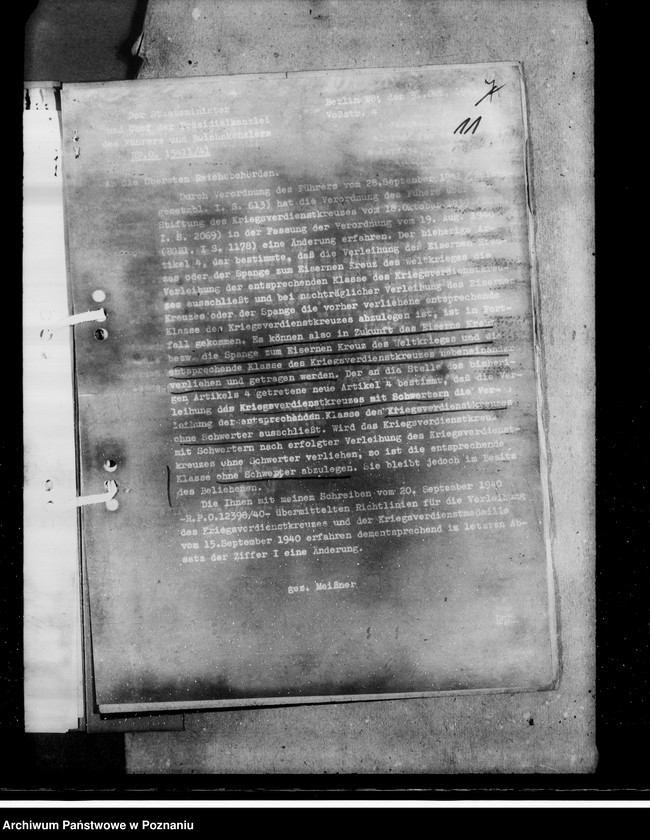 7
11
Der Staatsminister
und Chef der Präsidialkanzlei
des Führers und Reichskanzlers
Berlin W8, den
Voßstr. 4
An die Obersten Reichsbehörden.
Durch Verordnung des Führers vom 28.September 1941
gesetzbl. I. S. 613) hat die Verordnung des Führers über
Stiftung des Kriegsverdienstkreuzes vom 18.Oktober
I. S. 2069) in der Fassung der Verordnung vom 19. August
(RGBl. I S. 1178) eine Änderung erfahren. Der bisherige Ar-
tikel 4, der bestimmte, daß die Verleihung des Eisernen Kreu-
zes oder der Spange zum Eisernen Kreuz des Weltkrieges die
Verleihung der entsprechenden Klasse des Kriegsverdienstkreu-
zes ausschließt und bei nachträglicher Verleihung des Eisernen
Kreuzes oder der Spange die vorher verliehene entsprechende
Klasse des Kriegsverdienstkreuzes abzulegen ist, ist in Fort-
fall gekommen. Es können also in Zukunft das Eiserne Kreuz
bezw. die Spange zum Eisernen Kreuz des Weltkrieges und die
entsprechende Klasse des Kriegsverdienstkreuzes nebeneinander
verliehen und getragen werden. Der an die Stelle des bisheri-
gen Artikels 4 getretene neue Artikel 4 bestimmt, daß die Ver-
leihung des Kriegsverdienstkreuzes mit Schwertern die Ver-
leihung der entsprechenden Klasse des Kriegsverdienstkreuzes
ohne Schwerter ausschließt. Wird das Kriegsverdienstkreuz
mit Schwertern nach erfolgter Verleihung des Kriegsverdienst-
kreuzes ohne Schwerter verliehen, so ist die entsprechende
Klasse ohne Schwerter abzulegen. Sie bleibt jedoch im Besitz
des Beliehenen.
Die Ihnen mit meinem Schreiben vom 20. September 1940
-R.P.O.12398/40- übermittelten Richtlinien für die Verleihung
des Kriegsverdienstkreuzes und der Kriegsverdienstmedaille
vom 15.September 1940 erfahren dementsprechend im letzten Ab-
satz der Ziffer I eine Änderung.
gez. Meißner
Archiwum Państwowe w Poznaniu